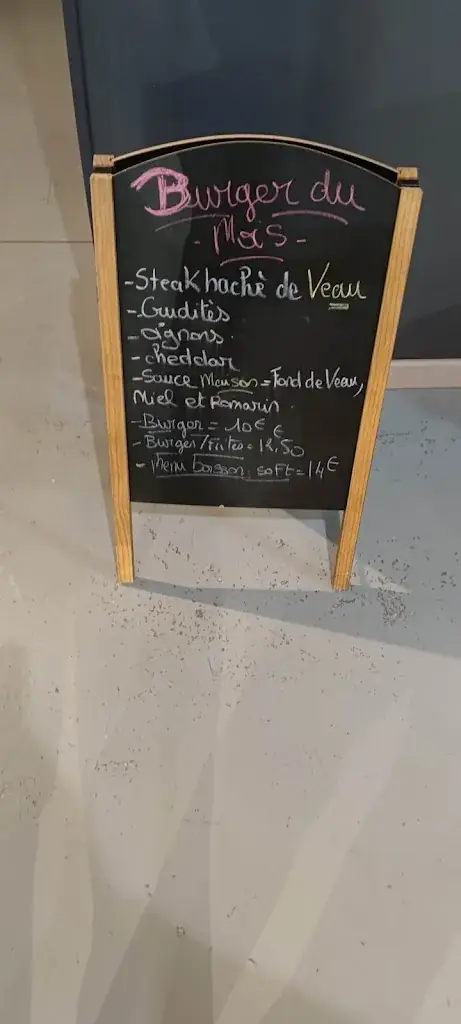 Burger du
- Mois -
- Steak haché de Veau
- Crudités
- oignons.
- cheddar
- Sauce Maison = Fond de Veau,
Miel et Romarin.
- Burger = 10€
- Burger/Frites = 12,50€
- Menu boisson soft = 14€